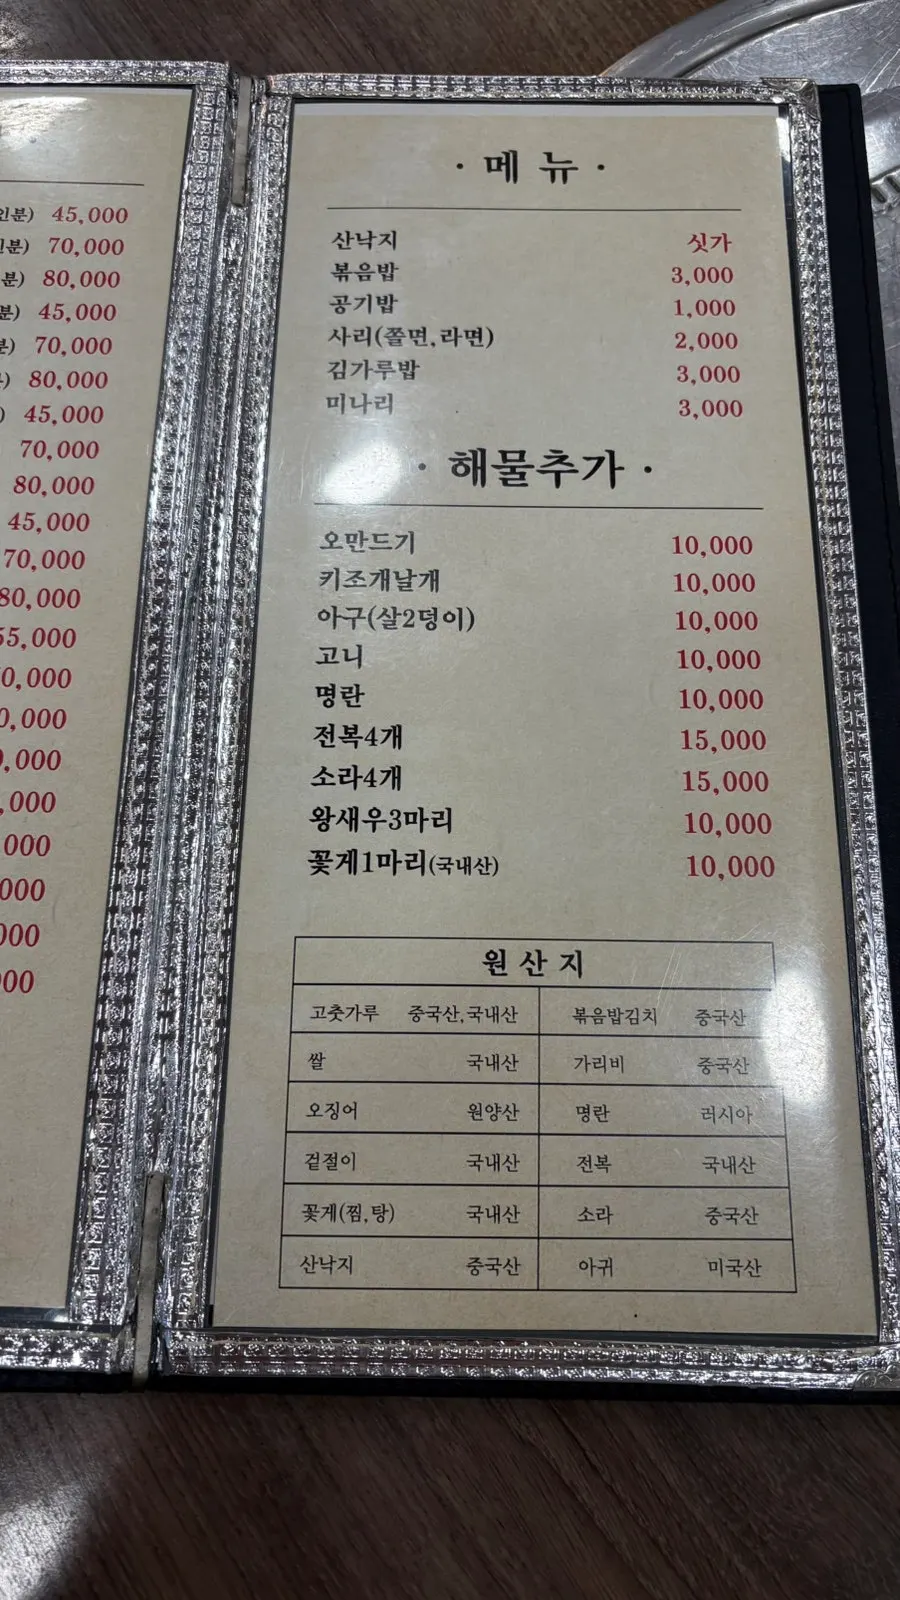 인분) 45,000
인분) 70,000
분) 80,000
분) 45,000
분) 70,000
80,000
45,000
70,000
80,000
45,000
70,000
80,000
55,000
0,000
0,000
0,000
,000
000
000
000
00
· 메 뉴 ·
산낙지 싯가
볶음밥 3,000
공기밥 1,000
사리(쫄면,라면) 2,000
김가루밥 3,000
미나리 3,000
· 해물추가 ·
오만드기 10,000
키조개날개 10,000
아구(살2덩이) 10,000
고니 10,000
명란 10,000
전복4개 15,000
소라4개 15,000
왕새우3마리 10,000
꽃게1마리(국내산) 10,000
원 산 지
고춧가루 중국산,국내산 볶음밥김치 중국산
쌀 국내산 가리비 중국산
오징어 원양산 명란 러시아
겉절이 국내산 전복 국내산
꽃게(찜,탕) 국내산 소라 중국산
산낙지 중국산 아귀 미국산